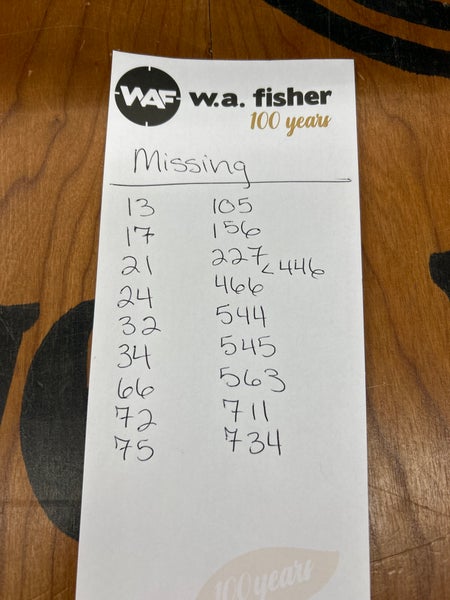 WAF w.a. fisher
100 years
Missing
13 105
17 156
21 227
<446
24 466
32 544
34 545
66 563
72 711
75 734
100 years